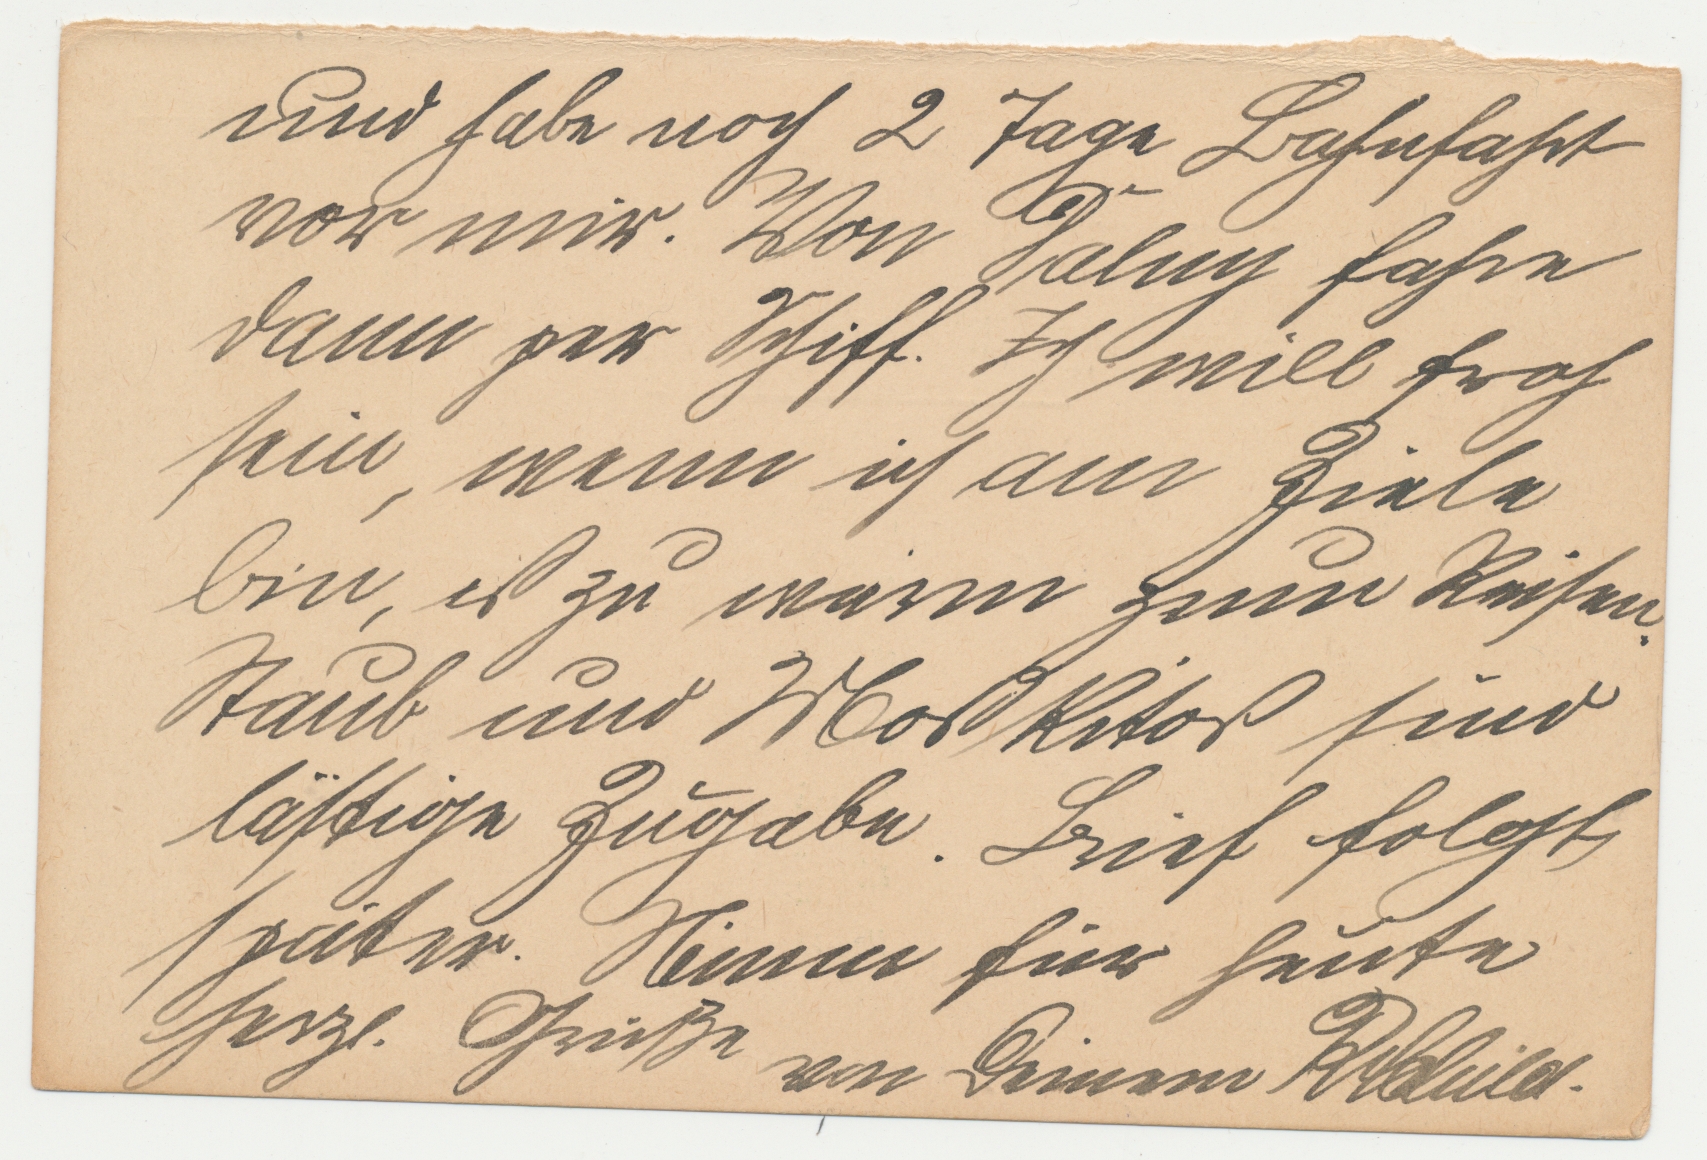 und habe noch 2 Tage Bahnfahrt
vor mir. Von fahre
dann per Schiff. Ich will froh
sein, wenn ich am Ziele
bin, es zu warm zum Reisen.
Staub und Moskitos sind
lästige Zugabe. Brief folgt
später. Nimm für heute
herzl. Grüße
von Deinem